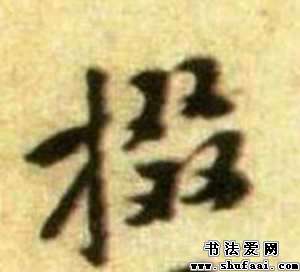 掇
书法爱网
www.shufaai.com